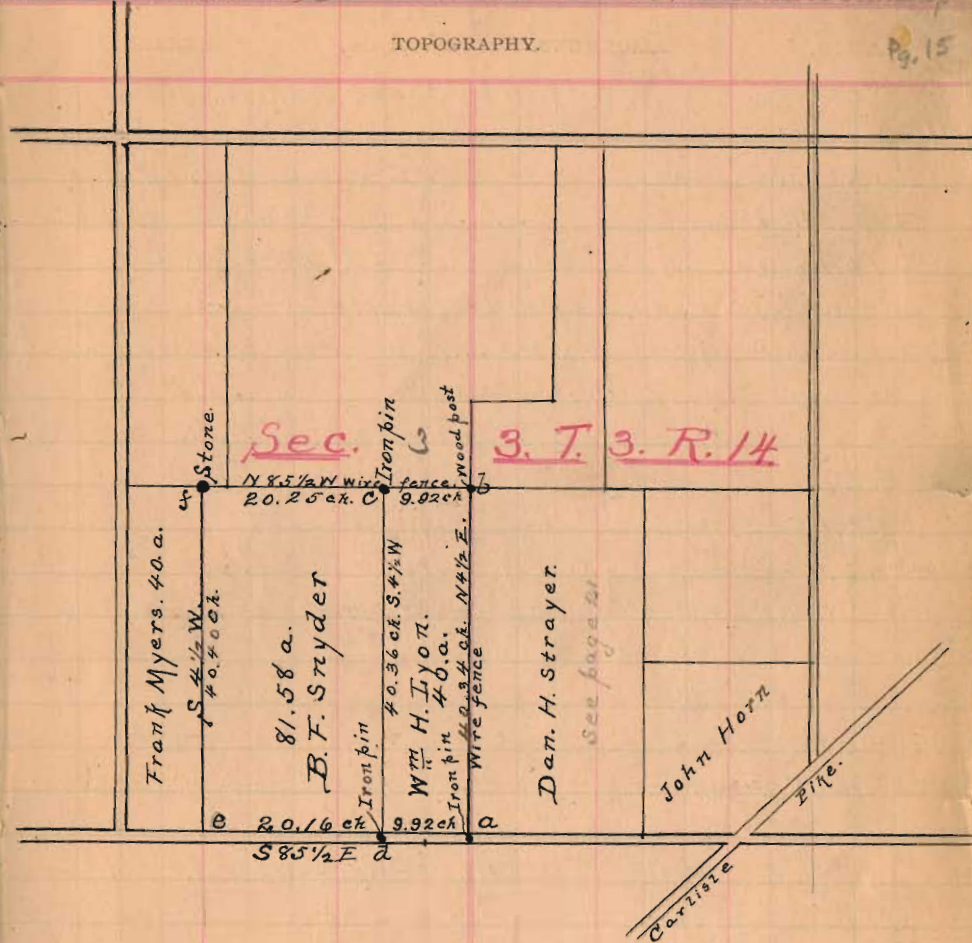 TOPOGRAPHY.
Pg. 15
Sec. 3. T. 3. R. 14
Stone.
Iron pin
Wood post
f
N 85½ W wire fence.
20.25 ch. c 9.92 ch
b
Frank Myers. 40 a.
S. 4½ W.
40.40 ch.
81.58 a.
B. F. Snyder
Iron pin
40.36 ch S. 4½ W
Wm H. Lyon.
40. a.
Iron pin
40.34 ch. N 4½ E.
Wire fence
Dan. H. Strayer.
See page
John Horn
e 20.16 ch 9.92 ch a
S 85½ E d
Carlisle Pike.